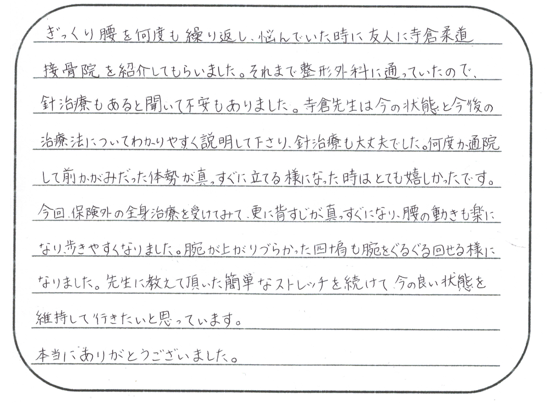 ぎっくり腰を何度も繰り返し、悩んでいた時に友人に寺倉柔道
接骨院を紹介してもらいました。それまで整形外科に通っていたので、
針治療もあると聞いて不安もありました。寺倉先生は今の状態と今後の
治療法についてわかりやすく説明して下さり、針治療も大丈夫でした。何度か通院
して前かがみだった体勢が真っすぐに立てる様になった時はとても嬉しかったです。
今回、保険外の全身治療を受けてみて、更に背すじが真っすぐになり、腰の動きも楽に
なり、歩きやすくなりました。腕が上がりづらかった四十肩も腕をぐるぐる回せる様に
なりました。先生に教えて頂いた簡単なストレッチを続けて今の良い状態を
維持して行きたいと思っています。
本当にありがとうございました。